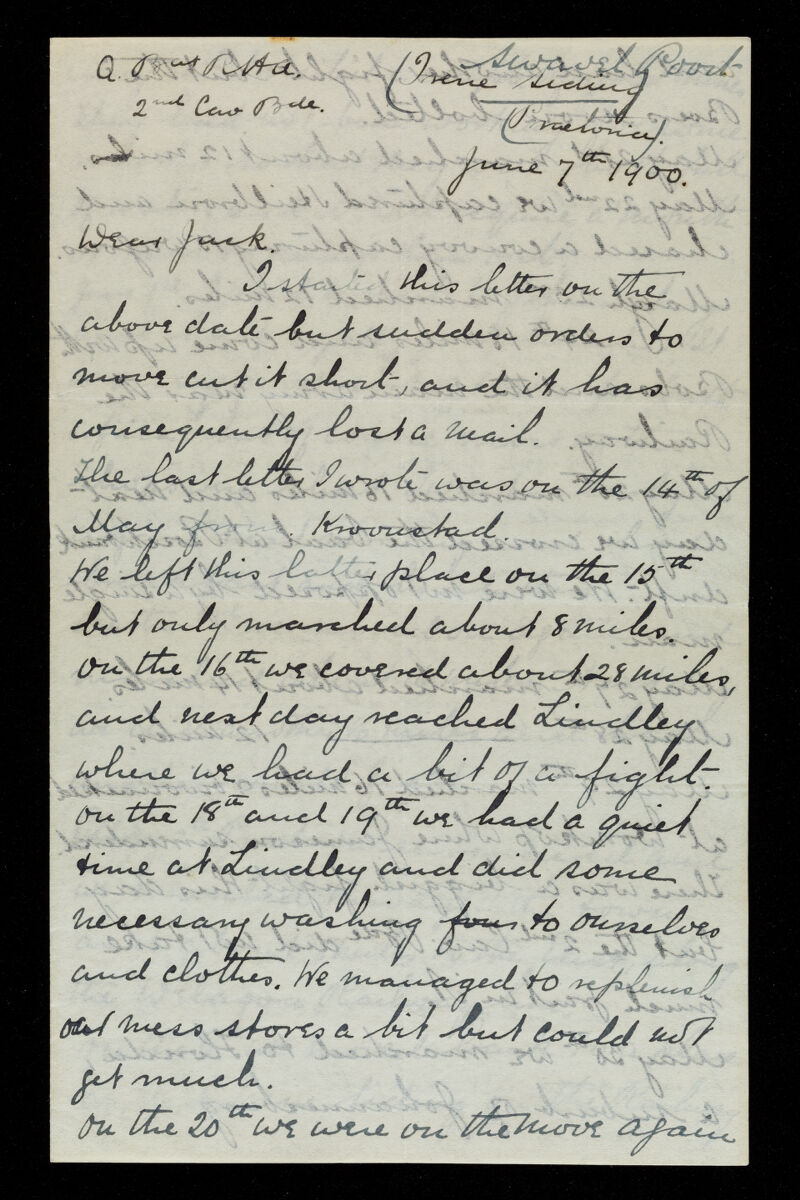 Q. Bat R.H.A.
2nd Cav Bde.
Swavel Poort
(Irene Siding
(Praetoria).
June 7th 1900.
Dear Jack.
I started this letter on the
above date but sudden orders to
move cut it short, and it has
consequently lost a mail.
The last letter I wrote was on the 14th of
May from Kroonstad.
We left this latter place on the 15th
but only marched about 8 miles.
on the 16th we covered about 28 miles,
and next day reached Lindley
where we had a bit of a fight.
on the 18th and 19th we had a quiet
time at Lindley and did some
necessary washing to ourselves
and clothes. We managed to replenish
our mess stores a bit but could not
get much.
on the 20th we were on the move again